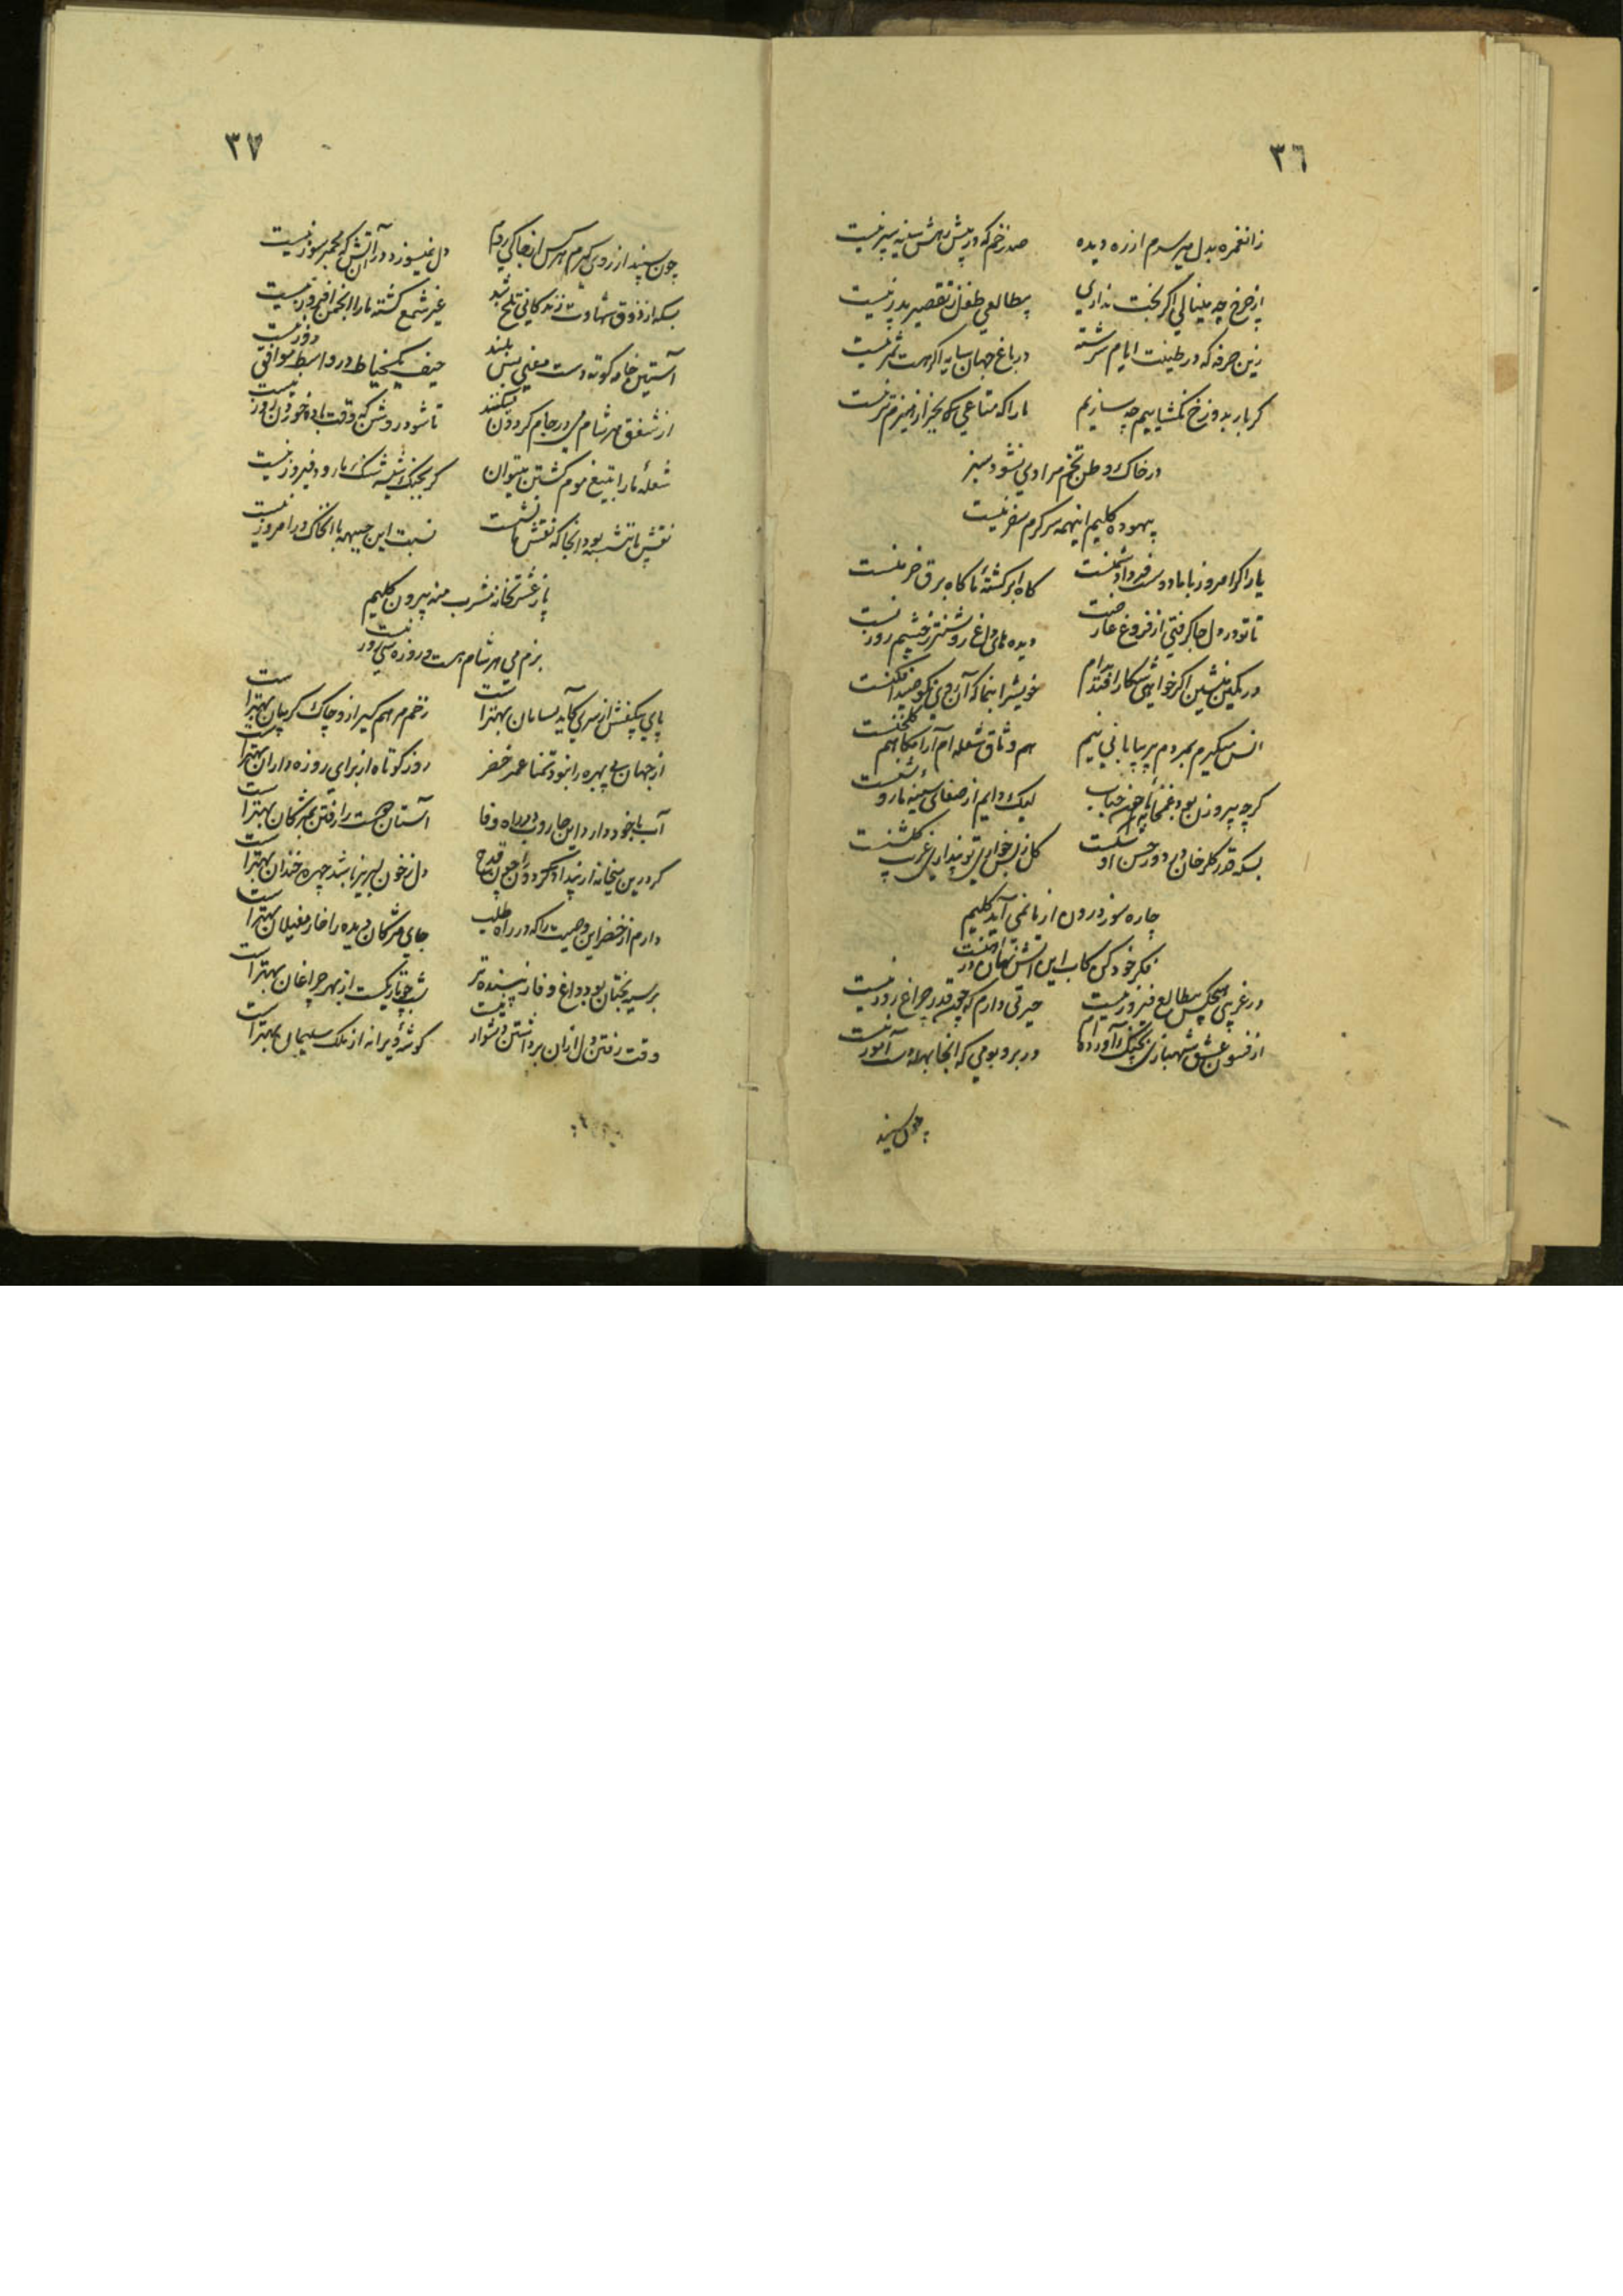 ٣٦
زانغمزه بدل میرسدم از ره دیده
صد زخم که در پیش رهش سینه سپر نیست
از چرخ چه مینالی اکر بخت نداری
بیطالعی طفل ز تقصیر پدر نیست
زین صرفه که در طینت ایام سرشته
در باغ جهان سایه اکر هست ثمر نیست
کر بار بدوزخ نکشاییم چه سازیم
ما را که متاعی بجز از هیزم تر نیست
در خاک وطن تخم مرادی نشود سبز
بیهوده کلیم اینهمه سرکرم سفر نیست
یار اکر امروز با ما دوست فردا دشمنست
کاه ابر کشتهٔ ما کاه برق خرمنست
تا تو در دل جا کرفتی از فروغ عارضت
دیده های داغ روشنتر ز چشم روزنست
در کمین منشین اکر خواهی شکار افتد بدام
خویشرا بنما که آن روی نکو صیدافکنست
انس میکیرم بمردم پر بیابانی نیم
هم وثاق شعله ام آرامکاهم کلخنست
کرچه بیروزن بود غمخانه ام چون حباب
لیک دایم از صفای سینهٔ ما روشنست
بسکه قدر کلرخان در دور حسن او شکست
کل ز بس خواری تو پنداری غریب کلشنست
چاره سوز درون از ما نمی آید کلیم
فکر خود کن کاب این آتش نهان در آهنست
در غریبی هیچکس بیطالع فیروز نیست
حیرتی دارم که چون قدر چراغ روز نیست
از فسون عشق شهبازی بچنک آورده ام
در بر و بومی که آنجا بهله دست آموز نیست
چون سپند
٣٧
چون سپند از روی کرم هر کس از جا کی روم
دل نمیسوزد در آن آتش که مجمر سوز نیست
بسکه از ذوق شهادت زندکانی تلخ شد
غیر شمع کشته ما را انجمن افروز نیست
آستین جامه کوته دست مفلس بس بلند
حیف یکخیاط در واسط موافق دوز نیست
از شفق هر شام می در جام کردون میکنند
تا شود روشن که وقت باده خوردن روز نیست
شعلهٔ ما را بتیغ موم کشتن میتوان
کر بجنک شیشه سنک آرد فیروز نیست
نقش ما ننشسته بود آنجا که نقش ما نشست
نسبت این جبهه با آنخاک در امروز نیست
پا ز عشرتخانه مشرب منه بیرون کلیم
بزم می هر شام هست و روزه سی روز نیست
پای بیکفش از سری کاید بسامان بهتر است
زخم مرهم کیر از و چاک کریبان بهتر است
از جهان بی بهره را نبود تمنا عمر خضر
روز کوتاه از برای روزه داران بهتر است
آب با خود دارد این جاروب در راه وفا
آستان دوست را رفتن بمژکان بهتر است
کر درین میخانه از بیداد کردون چون قدح
دل ز خون لبریز باشد چهره خندان بهتر است
دارم از خضر این وصیت را که در راه طلب
جای مژکان دیده را خار مغیلان بهتر است
بر سیه بختان بود داغ وفا زیبنده تر
شب چو تاریکست از بهر چراغان بهتر است
وقت رفتن دل از آن برداشتن دشوار نیست
کوشهٔ ویرانه از ملک سلیمان بهتر است